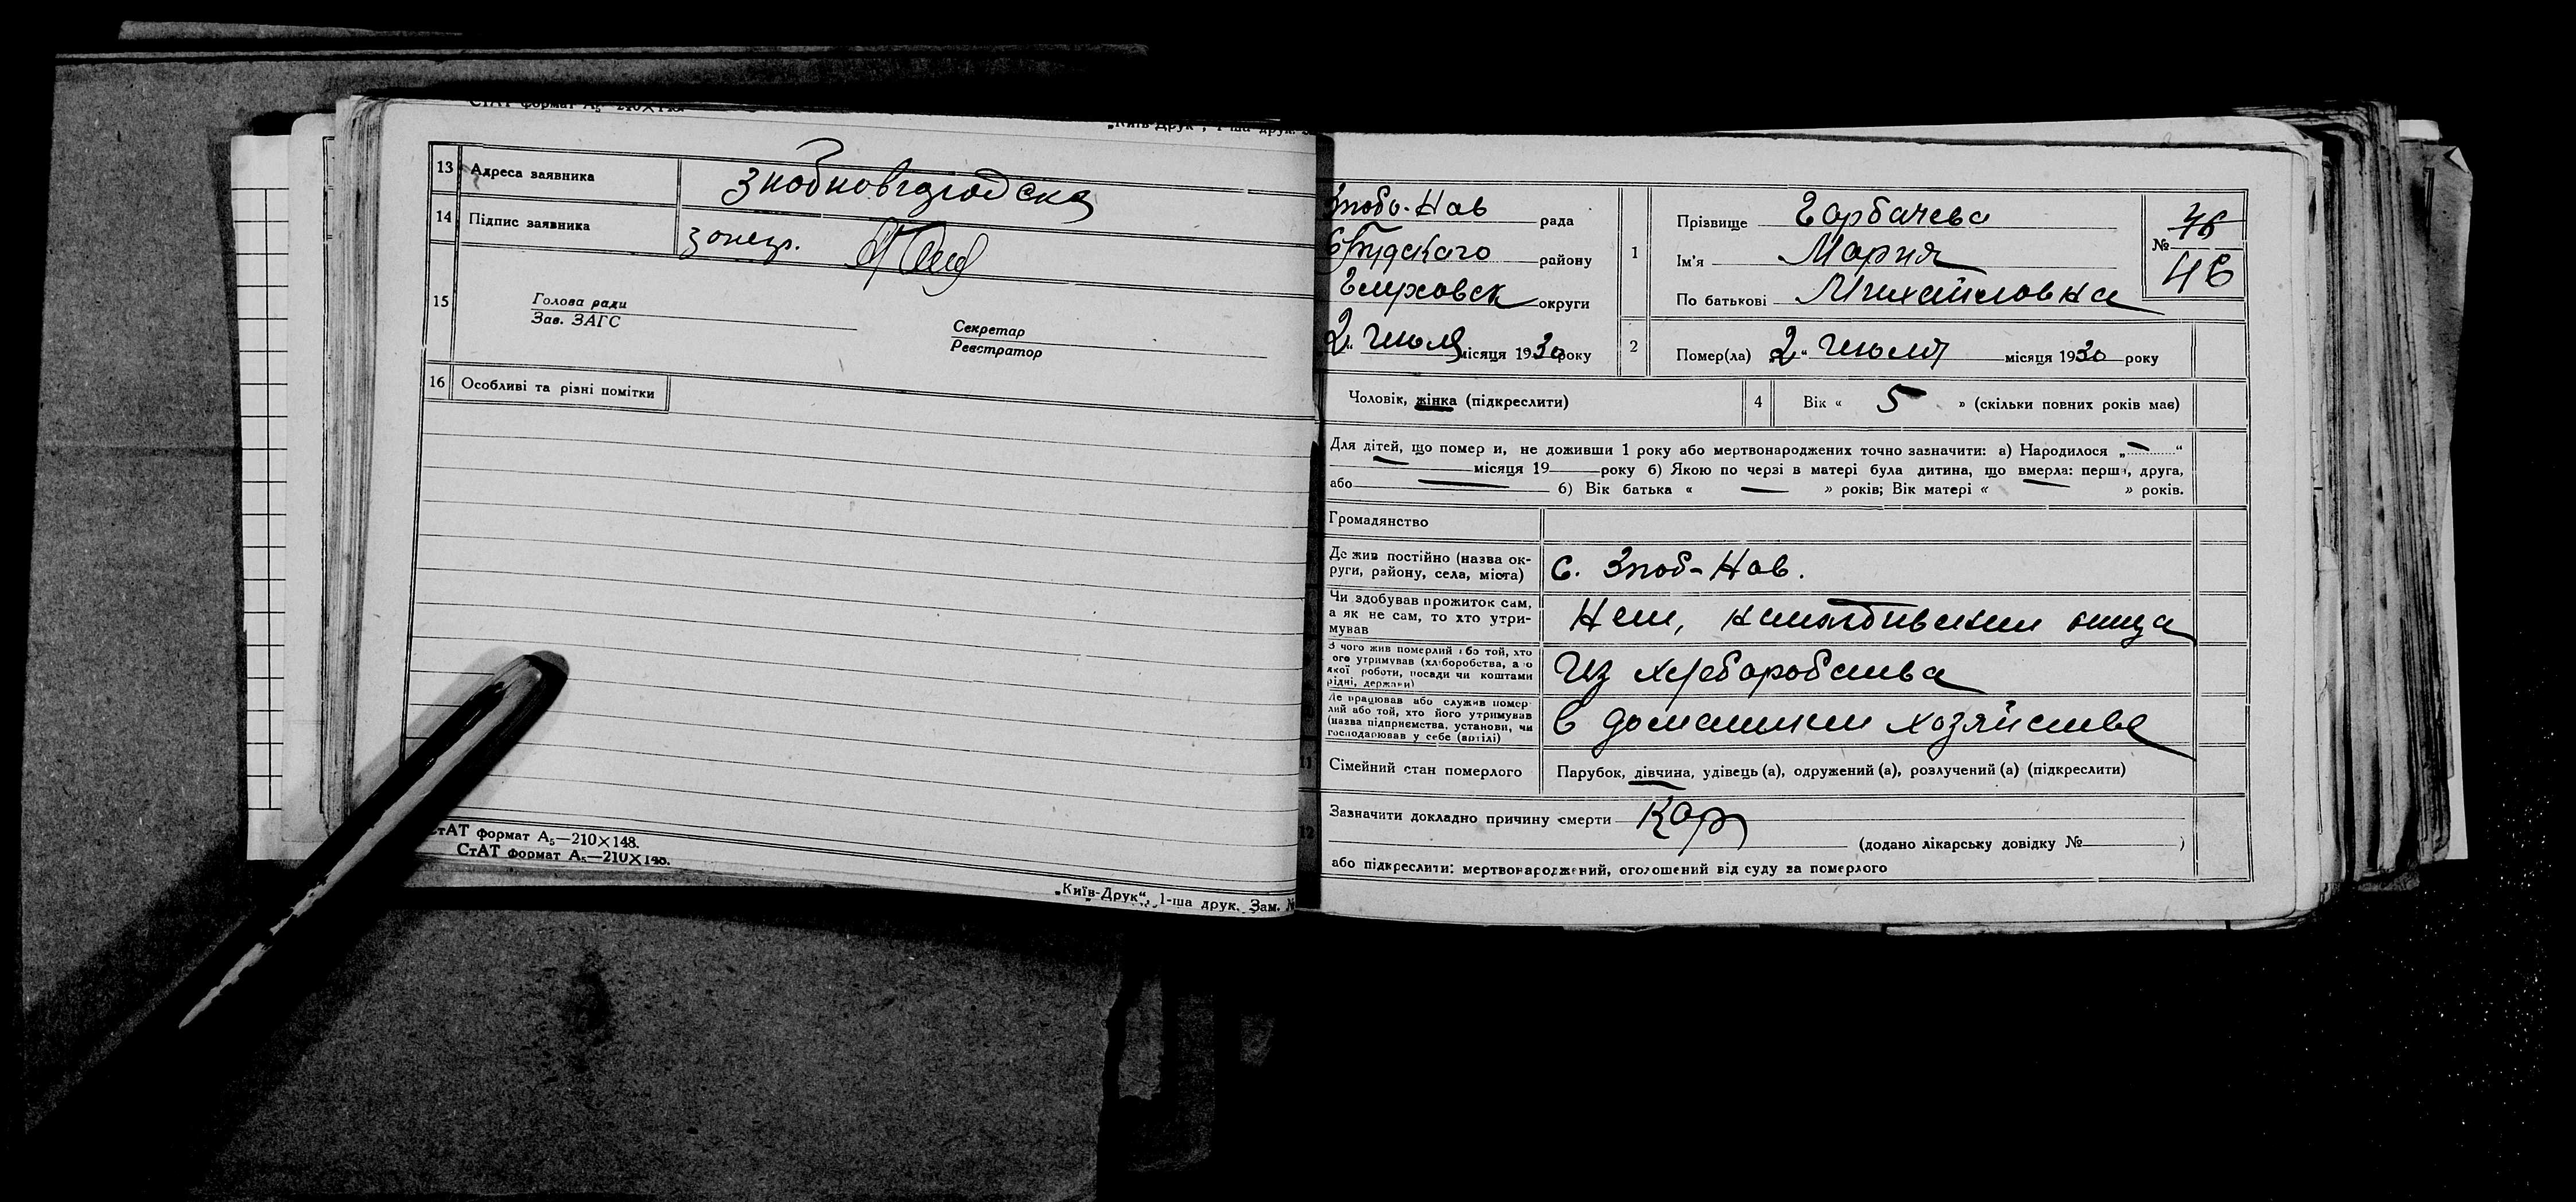 СтАТ формат А₅—210×148.
„Київ-Друк", 1-ша друк. З
13 Адреса заявника Знобновгородска
14 Підпис заявника
15 Голова ради
Зав. ЗАГС
Секретар
Реєстратор
16 Особливі та різні помітки
СтАТ формат А₅—210×148.
СтАТ формат А₅—210×148.
„Київ-Друк", 1-ша друк. Зам. №
Знобо-Нов рада
СБудского району
Глуховск округи
2 " Июля місяця 1930 року
1 Прізвище Горбачева
Ім'я Мария
По батькові Михайловна
№ 46
46
2 Помер(ла) „2" Июля місяця 1930 року
Чоловік, жінка (підкреслити)
4 Вік « 5 » (скільки повних років має)
Для дітей, що помер и, не доживши 1 року або мертвонароджених точно зазначити: а) Народилося „—"
— місяця 19 року б) Якою по черзі в матері була дитина, що вмерла: перша, друга,
або — б) Вік батька « — » років; Вік матері « — » років.
Громадянство
Де жив постійно (назва ок-
руги, району, села, міста) с. Зноб-Нов.
Чи здобував прожиток сам,
а як не сам, то хто утри-
мував Нет,
З чого жив померлий або той, хто
ого утримував (хліборобства, а о
якої роботи, посади чи коштами
рідні, держави) Из хлеборобства
Де працював або служив помер-
лий або той, хто його утримував
(назва підприємства, установи, чи
господарював у себе (артілі) в домашнем хозяйстве
11 Сімейний стан померлого Парубок, дівчина, удівець (а), одружений (а), розлучений (а) (підкреслити)
12 Зазначити докладно причину смерти Кор
(додано лікарську довідку № )
або підкреслити: мертвонароджений, оголошений від суду за померлого